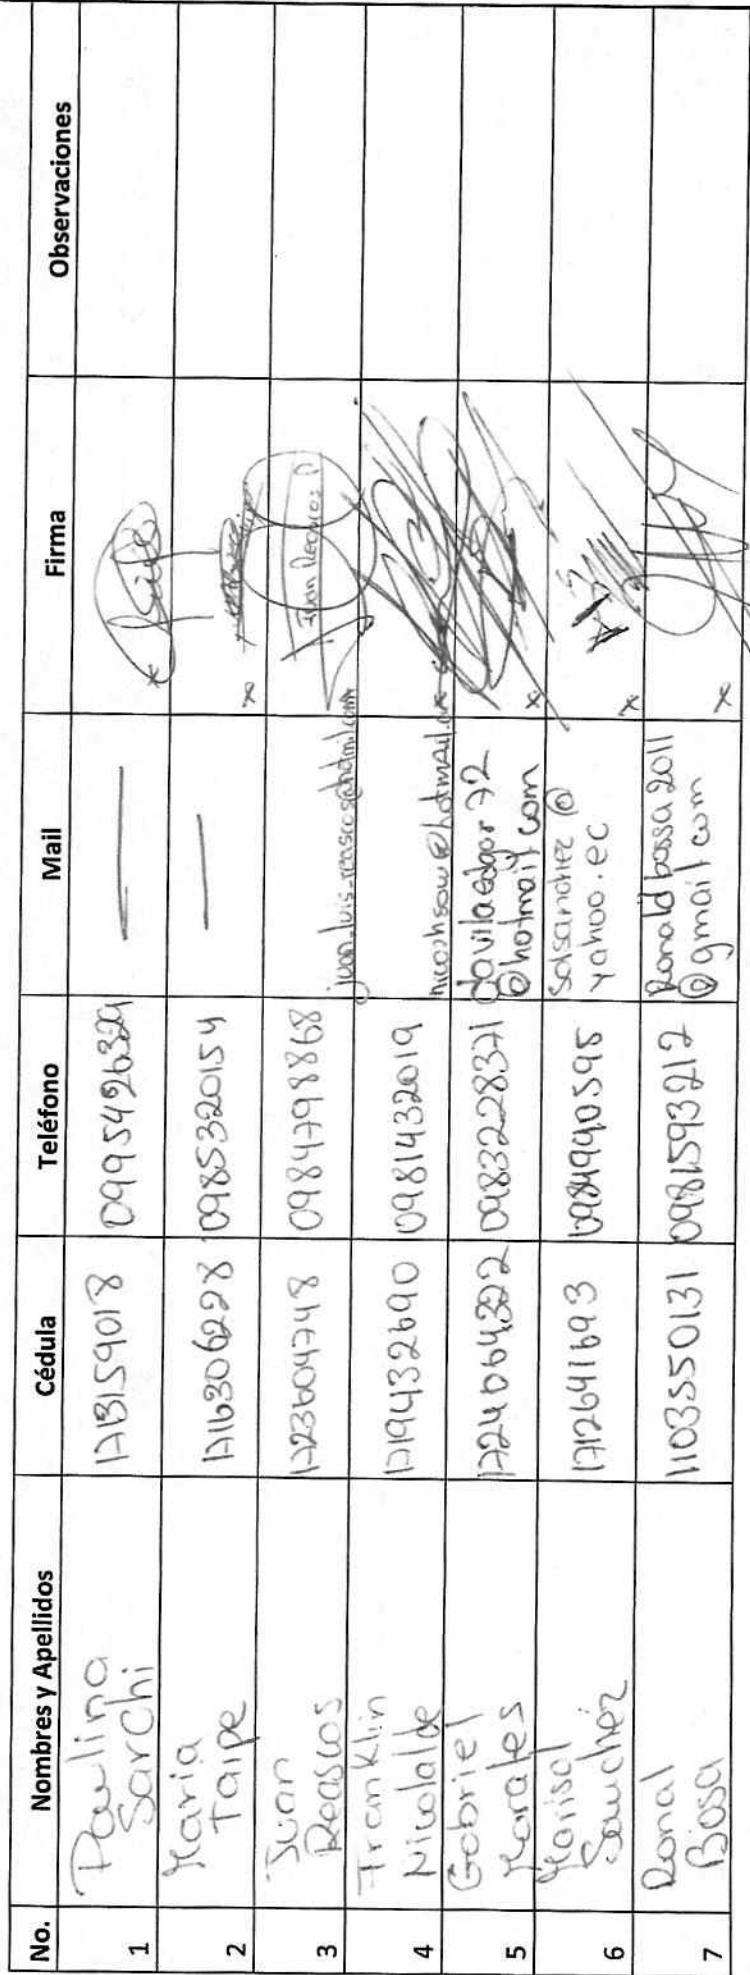 No. Nombres y Apellidos Cédula Teléfono Mail Firma Observaciones
1 Paulina Sarchi 1713159018 0995426329
2 Maria Taipe 1716306228 0985320154
3 Juan Reascos 1723604748 0984798868 juan_luis_reascos@hotmail.com Juan Reascos P
4 Franklin Nicolalde 1719432690 0981432019
5 Gabriel Morales 1724064322 0983228371 davilaedgar72
@hotmail.com
6 Marisol Sanchez 1712641693 0984990595 solsanchez@
yahoo.ec
7 Ronal Bosa 1103550131 0981593212 Ronaldbossa2011
@gmail.com